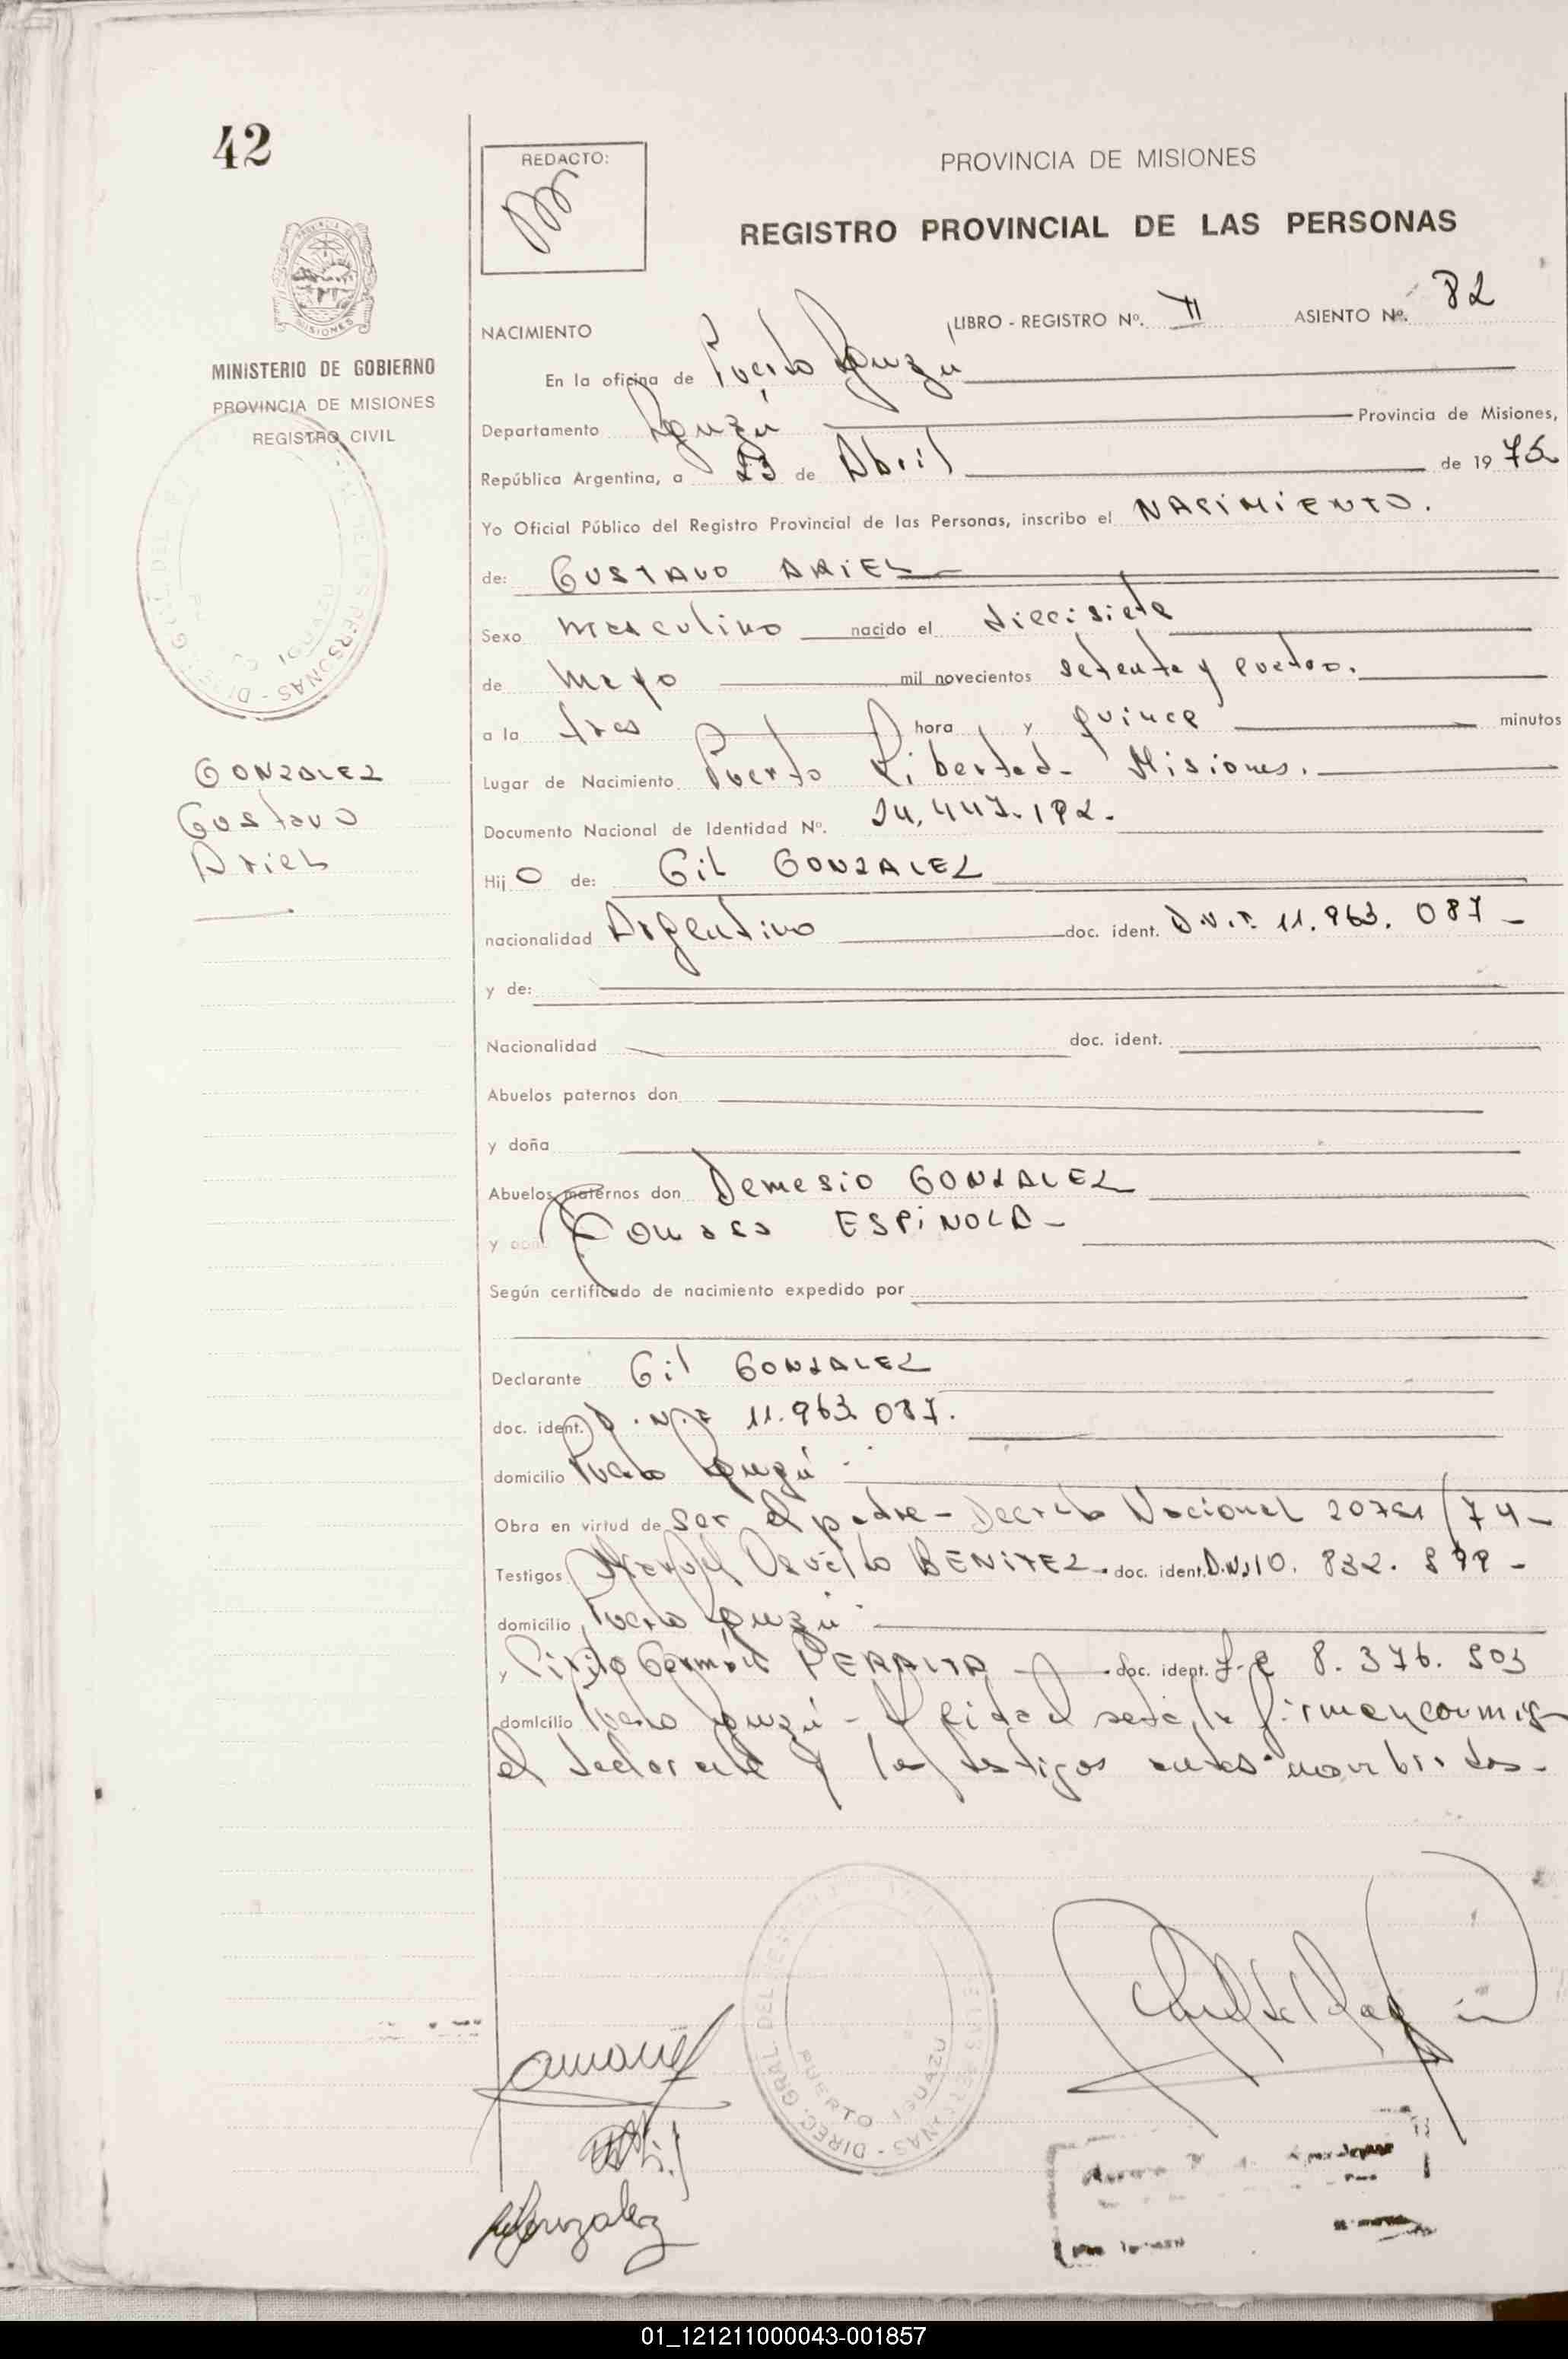 42
REDACTO:
PROVINCIA DE MISIONES
REGISTRO PROVINCIAL DE LAS PERSONAS
MINISTERIO DE GOBIERNO
PROVINCIA DE MISIONES
REGISTRO CIVIL
GONZALEZ
Gustavo
Ariel
NACIMIENTO LIBRO - REGISTRO Nº. II ASIENTO Nº. 82
En la oficina de Puerto Iguazú
Departamento Iguazú Provincia de Misiones,
República Argentina, a 23 de Abril de 1975
Yo Oficial Público del Registro Provincial de las Personas, inscribo el NACIMIENTO.
de: GUSTAVO ARIEL
Sexo masculino nacido el diecisiete
de Mayo mil novecientos setenta y cuatro.
a la tres hora y quince minutos
Lugar de Nacimiento Puerto Libertad - Misiones.
Documento Nacional de Identidad Nº.
Hij o de: Gil GONZALEZ
nacionalidad Argentino doc. ident. D.N.I. 11.963.087-
y de:
Nacionalidad doc. ident.
Abuelos paternos don
y doña
Abuelos maternos don Demesio GONZALEZ
y doña Tomasa ESPINOLA-
Según certificado de nacimiento expedido por
Declarante Gil GONZALEZ
doc. ident. D.N.I 11.963.087.
domicilio Puerto Iguazú
Obra en virtud de ser el padre - Decreto Nacional /74-
Testigos Osvaldo BENITEZ. doc. ident. D.N.I 10.832.
domicilio Puerto Iguazú
y Germán PERALTA doc. ident. 8.376.
domicilio Puerto Iguazú - Leída el acta, la firman conmigo
el declarante y los testigos antes nombrados-
PUERTO IGUAZU
01_121211000043-001857